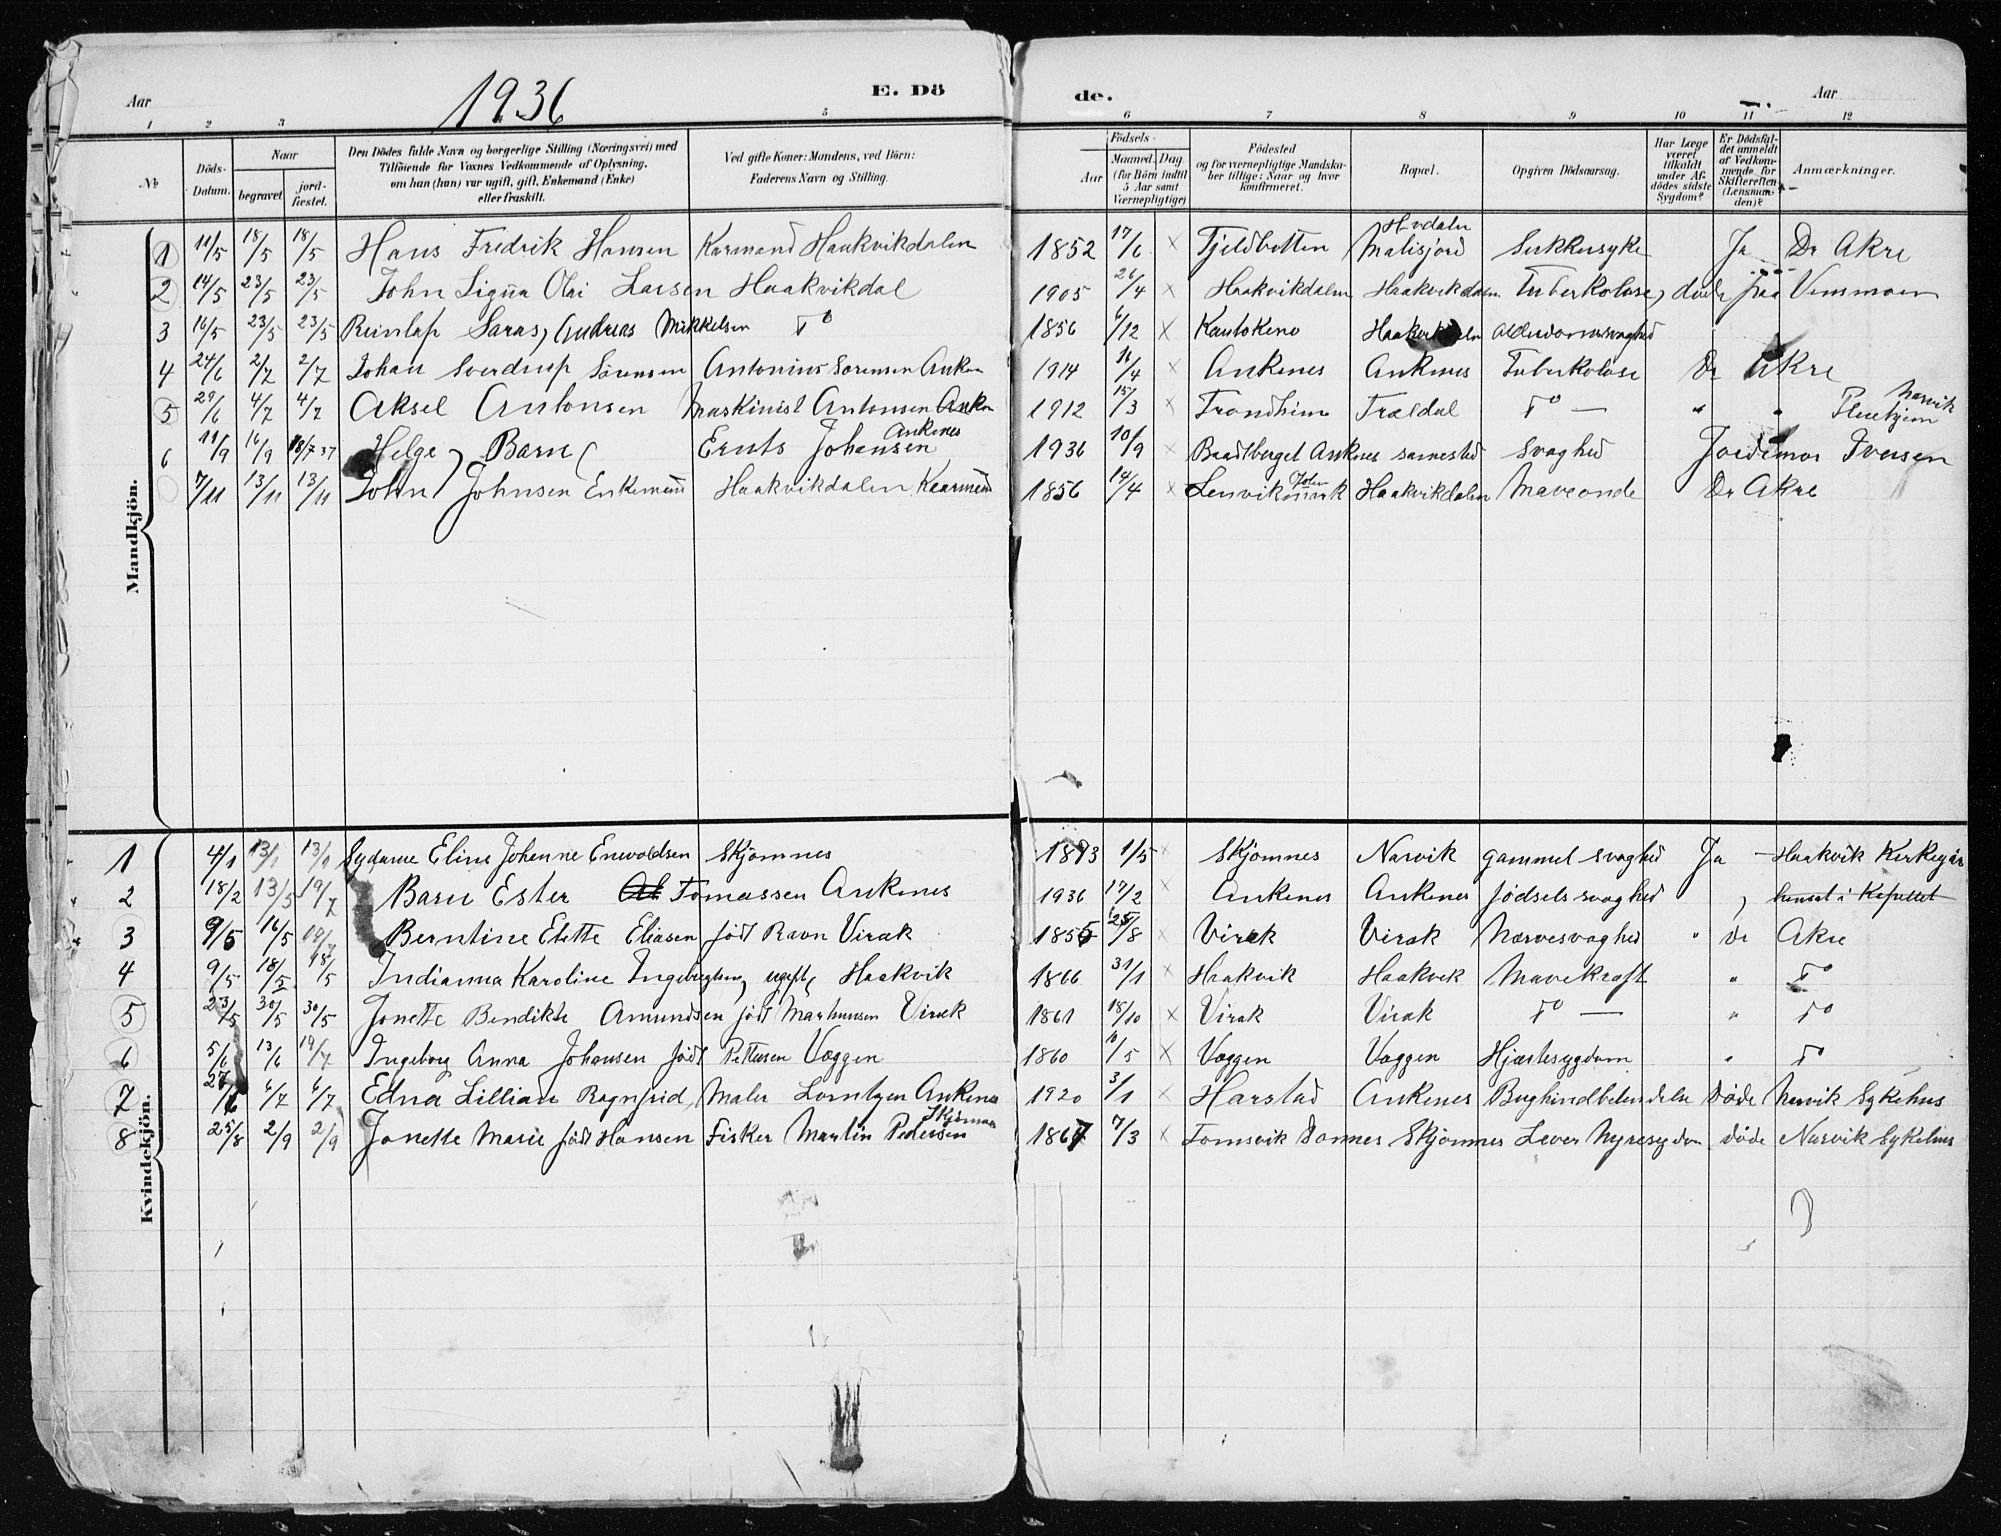 Aar
1936
E. Dö
de.
Aar
1 2 3 5 6 7 8 9 10 11 12
No
Döds-Datum.
Naar
begravet
jord-fæstet.
Den Dödes fulde Navn og borgerlige Stilling (Næringsvei) med
Tilföiende for Voxnes Vedkommende af Oplysning,
om han (hun) var ugift, gift, Enkemand (Enke)
eller fraskilt.
Ved gifte Koner: Mandens, ved Börn:
Faderens Navn og Stilling.
Födsels-
Aar
Maaned. Dag
(for Börn indtil
5 Aar samt
Værnepligtige)
Födested
og for værnepligtige Mandska-
ber tillige: Naar og hvor
konfirmeret.
Bopæl.
Opgiven Dödsaarsag.
Har Læge
været
tilkaldt
under Af-
dödes sidste
Sygdom?
Er Dödsfal-
det anmeldt
af Vedkom-
mende for
Skifteretten
(Lensman-
den)?
Anmærkninger.
Mandkjön.
1 11/5 18/5 18/5 Hans Fredrik Hansen Karmand Haakvikdalen 1852 17/6 × Fjeldbotten Hvdalen Malisjord Sukkersyke Ja Dr Akre
2 14/5 23/5 23/5 John Signa Olai Larsen Haakvikdal 1905 26/4 × Haakvikdalen Haakvikdalen Tuberkolose, døde paa Vensmoen
3 16/5 23/5 23/5 Saras, Andreas Mikkelsen Do 1856 6/12 × Kautokeno Alderdomssvaghed
4 24/6 2/7 2/7 Johan Sverdrup Sørensen Antonius Sørensen Anken 1914 16/4 × Ankenes Ankenes Tuberkolose Dr Akre
5 29/6 4/7 4/7 Aksel Antonsen Maskinist Antonsen Anken 1912 15/3 × Trondhim Trældal Do — " " Narvik Pleiehjem
6 11/9 16/9 18/7 37 Helge, Barn Ernts Johansen Ankenes 1936 10/9 Ankenes samested Svaghed Jordmor Iversen
7/11 13/11 13/11 John Johnsen Enkemann Haakvikdalen Kaarmann 1856 14/4 × Haakvikdalen Maveonde Dr Akre
Kvindekjön.
1 4/1 13/1 13/1 Eline Johanne Enevoldsen Skjomnes 1873 1/5 × Skjomnes Narvik gammel svaghed Ja — Haakvik Kerkegår
2 18/2 13/5 19/7 Barn Ester Tomassen Ankenes 1936 17/2 × Ankenes Ankenes fødsels svaghed , hensat i Kapellet
3 9/5 16/5 Berntine Elette Eliasen født Ravn Virak 1855 25/8 × Virak Virak Nærvesvaghed " Dr Akre
4 9/5 18/5 18/5 Indianna Karoline Ingebregtsen, ugift, Haakvik 1866 31/1 × Haakvik Haakvik Mavekræft " Do
5 23/5 30/5 30/5 Jonette Bendikte Amundsen født Markussen Virak 1861 18/10 × Virak Virak Do — " Do
6 5/6 13/6 19/7 Ingeborg Anna Johansen født Pettersen Vaggen 1860 10/5 × Vaggen Vaggen Hjærtesygdom " Do
7 27/6 6/7 6/7 Edna Lillian Ragnfrid Maler Lorntzen Ankenes 1920 3/1 × Harstad Ankenes Døde Narvik Sykehus
8 25/8 2/9 2/9 Jonette Marie født Hansen Fisker Martin Pedersen Skjomnes 1867 7/3 × Tomsvik Dønnes Skjomnes Lever Nyresygdom døde Narvik Sykehus